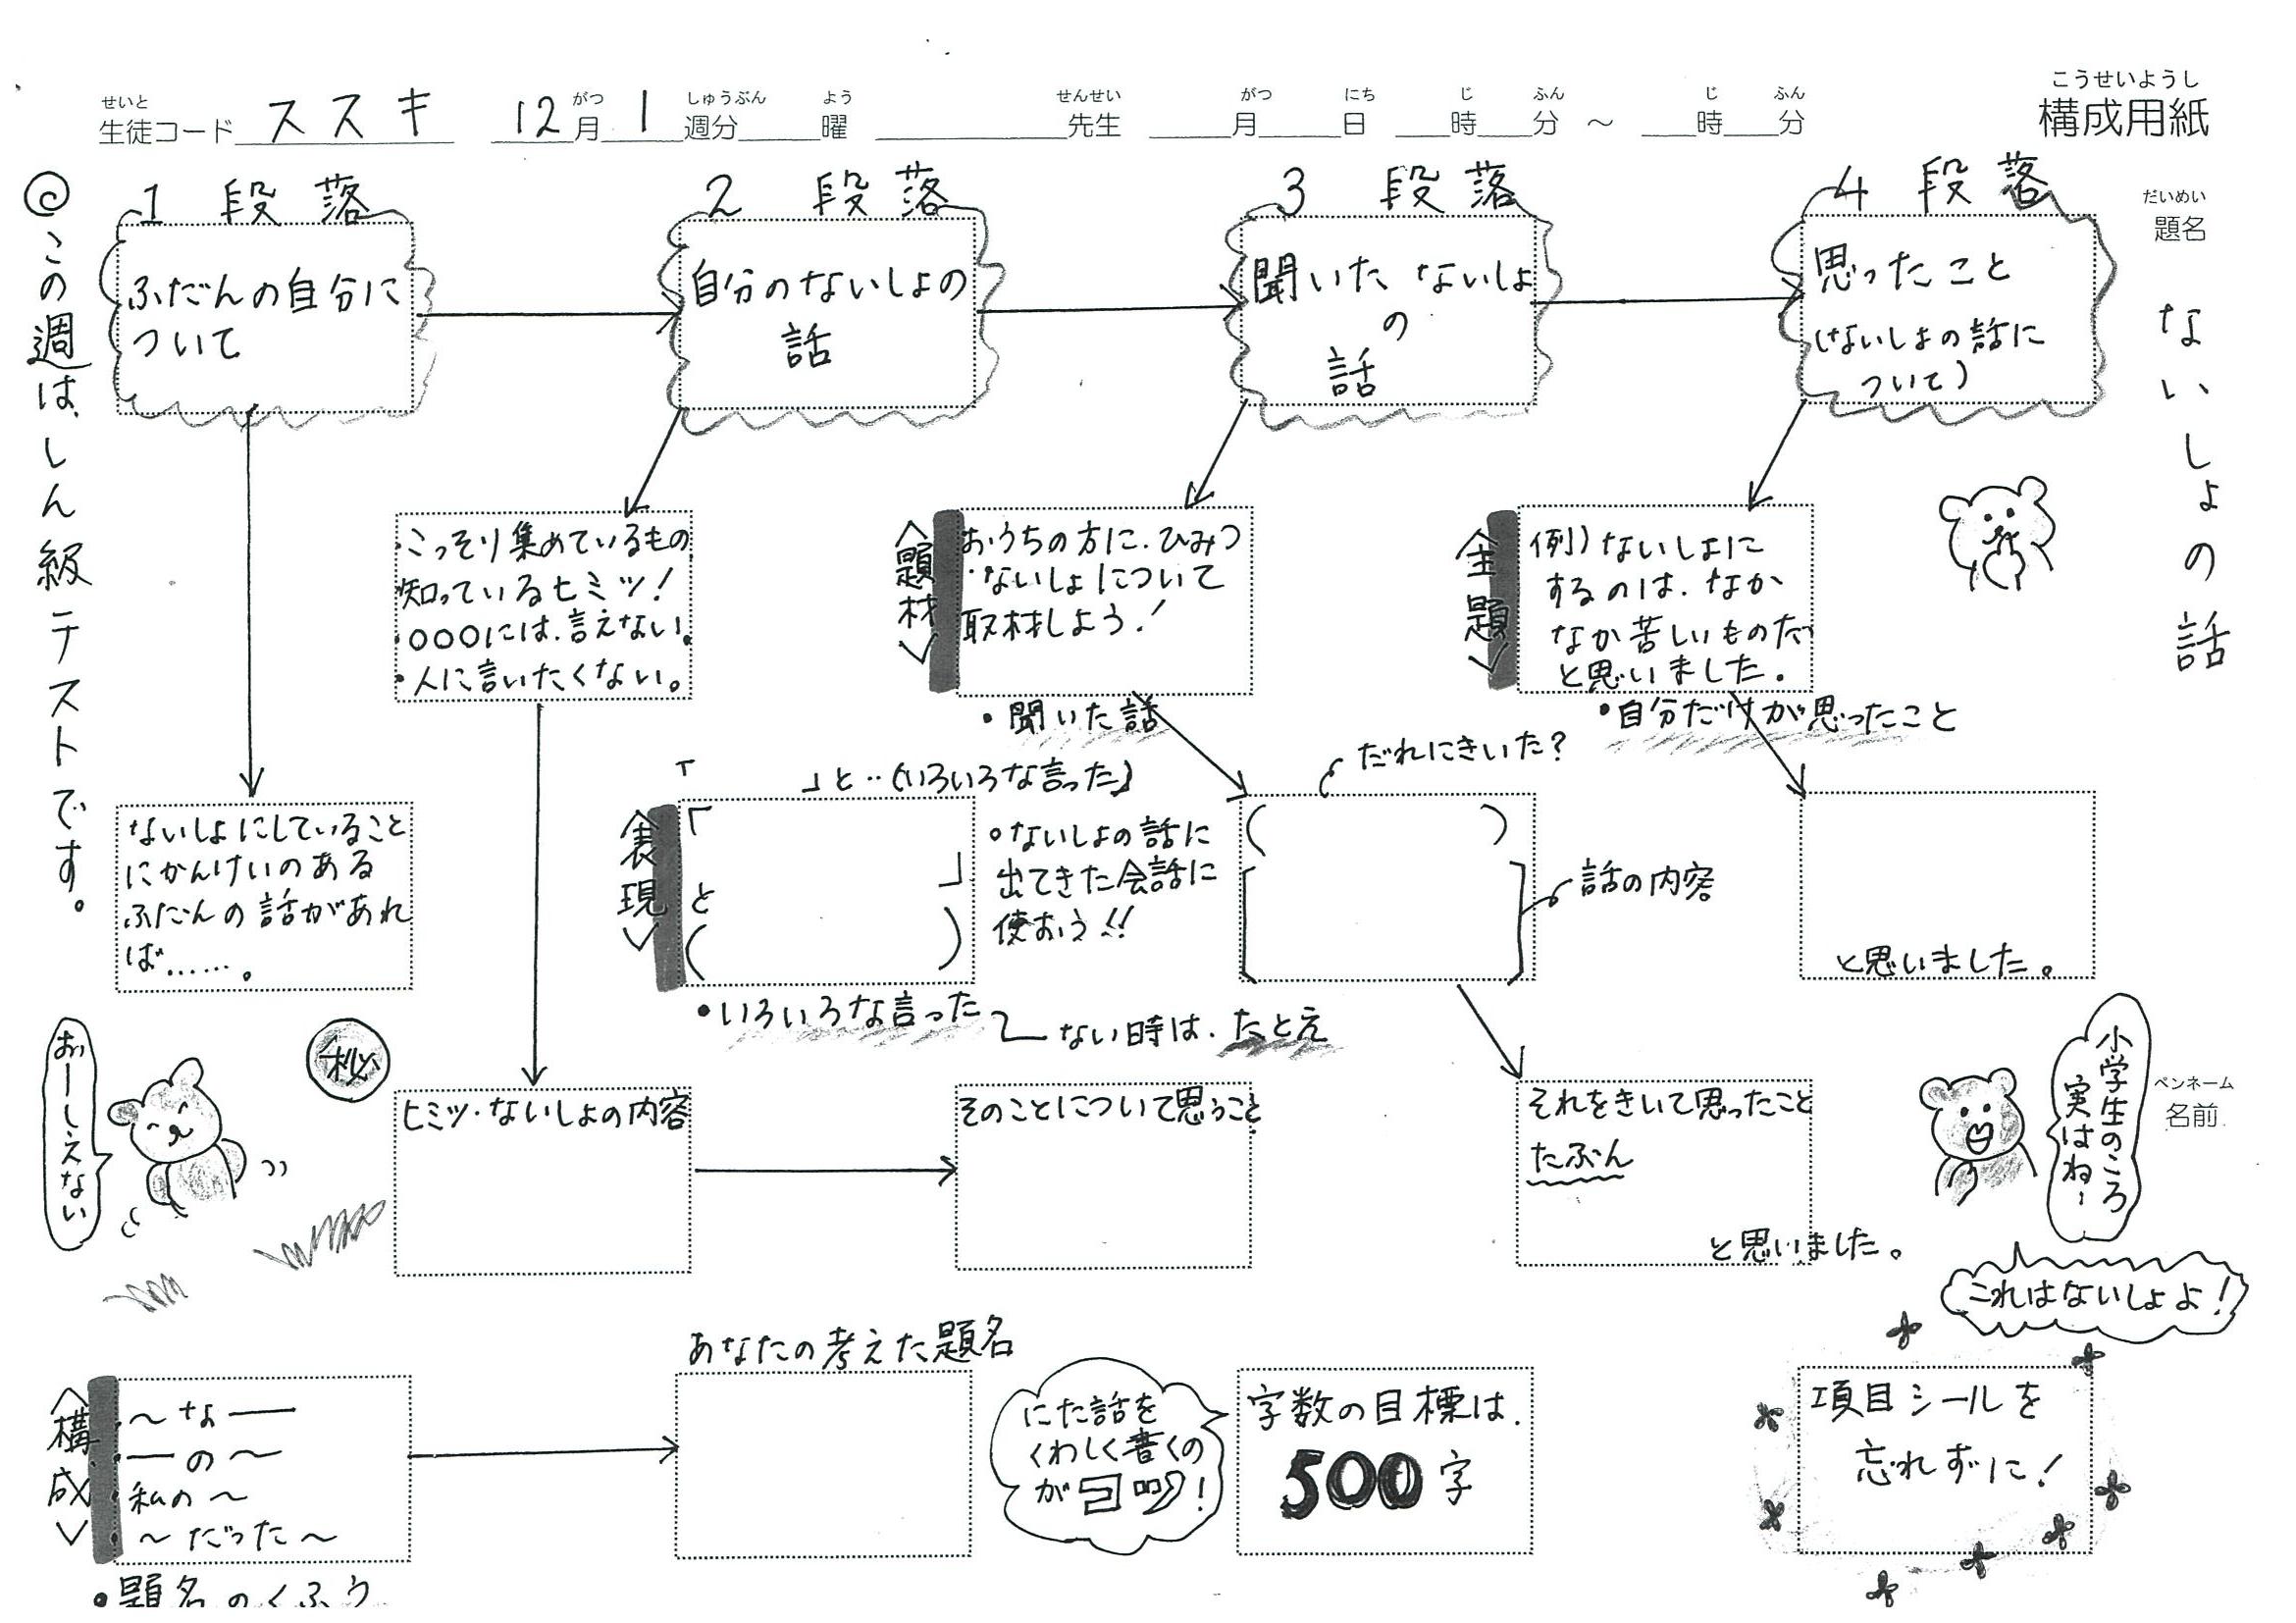 こうせいようし
構成用紙
せいと
生徒コード ススキ
がつ
12月
しゅうぶん
1週分
よう
曜
せんせい
先生
がつ
月
にち
日
じ
時
ふん
分
～
じ
時
ふん
分
だいめい
題名
ないしょの話
ペンネーム
名前
この週は、しん級テストです。
1段落
ふだんの自分に
ついて
2段落
自分のないしょの
話
3段落
聞いたないしょ
の
話
4段落
思ったこと
(ないしょの話に
ついて)
・こっそり集めているもの
・知っているヒミツ!
・○○○には、言えない。
・人に言いたくない。
〈題材〉
おうちの方に、ひみつ
・ないしょについて
取材しよう!
・聞いた話
〈主題〉
例)ないしょに
するのは、なか
なか苦しいものだ
と思いました。
・自分だけが思ったこと
ないしょにしていること
にかんけいのある
ふだんの話があれ
ば……。
「 」と‥(いろいろな言った)
〈表現〉
「
」
と
( )
・いろいろな言った
ない時は、たとえ
○ないしょの話に
出てきた会話に
使おう!!
だれにきいた?
( )
話の内容
と思いました。
おーしえない
秘
ヒミツ・ないしょの内容
そのことについて思うこと
それをきいて思ったこと
たぶん
と思いました。
小学生のころ
実はね〜
これはないしょよ!
〈構成〉
・〜な―
・―の〜
・私の〜
・〜だった〜
・題名のくふう
あなたの考えた題名
にた話を
くわしく書くの
がコツ!
字数の目標は、
500字
項目シールを
忘れずに!